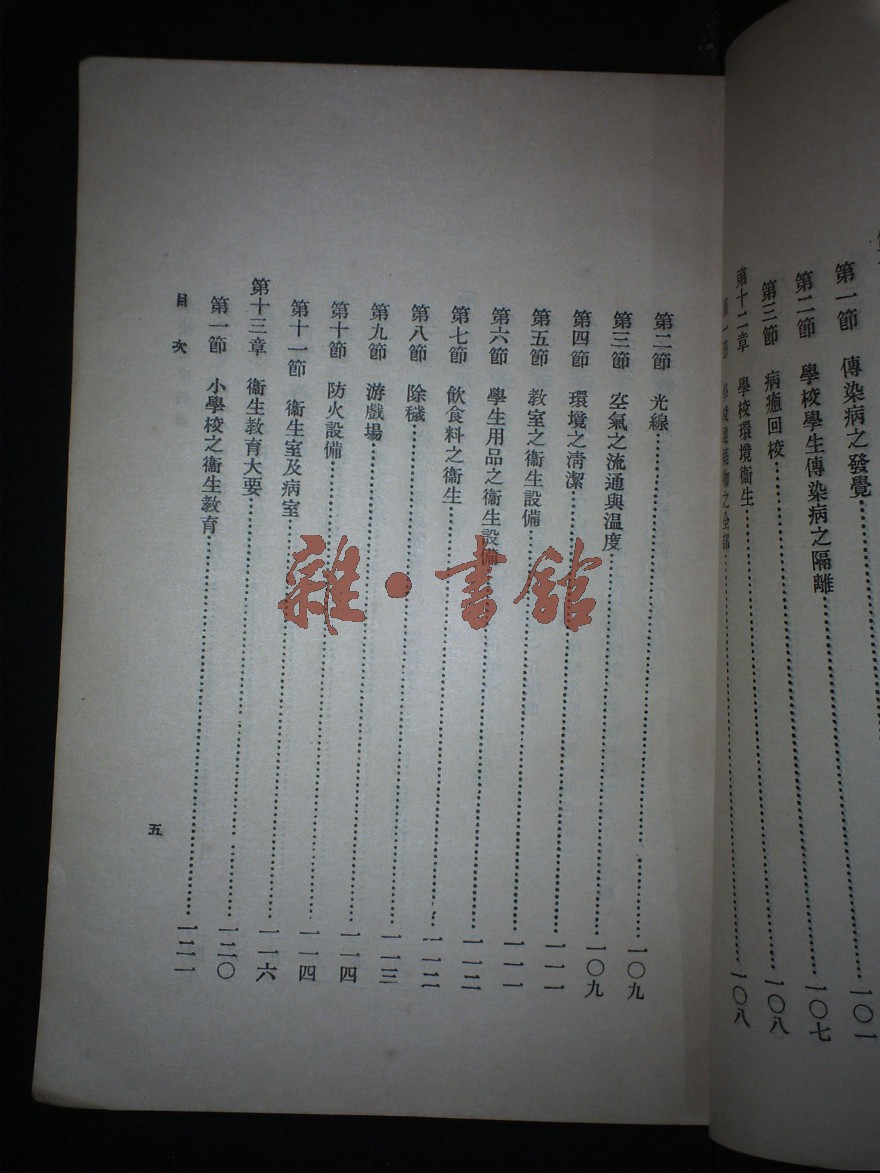 第一節　傳染病之發覺……一〇一
第二節　學校學生傳染病之隔離……一〇七
第三節　病癒回校……一〇八
第十二章　學校環境衞生……一〇八
第二節　光線……一〇九
第三節　空氣之流通與温度……一〇九
第四節　環境之清潔……一一一
第五節　教室之衞生設備……一一一
第六節　學生用品之衞生設備……一一二
第七節　飲食料之衞生……一一二
第八節　除穢……一一三
第九節　游戲場……一一四
第十節　防火設備……一一四
第十一節　衞生室及病室……一一六
第十三章　衞生教育大要……一二〇
第一節　小學校之衞生教育……一二一
目次
五
雜·書館